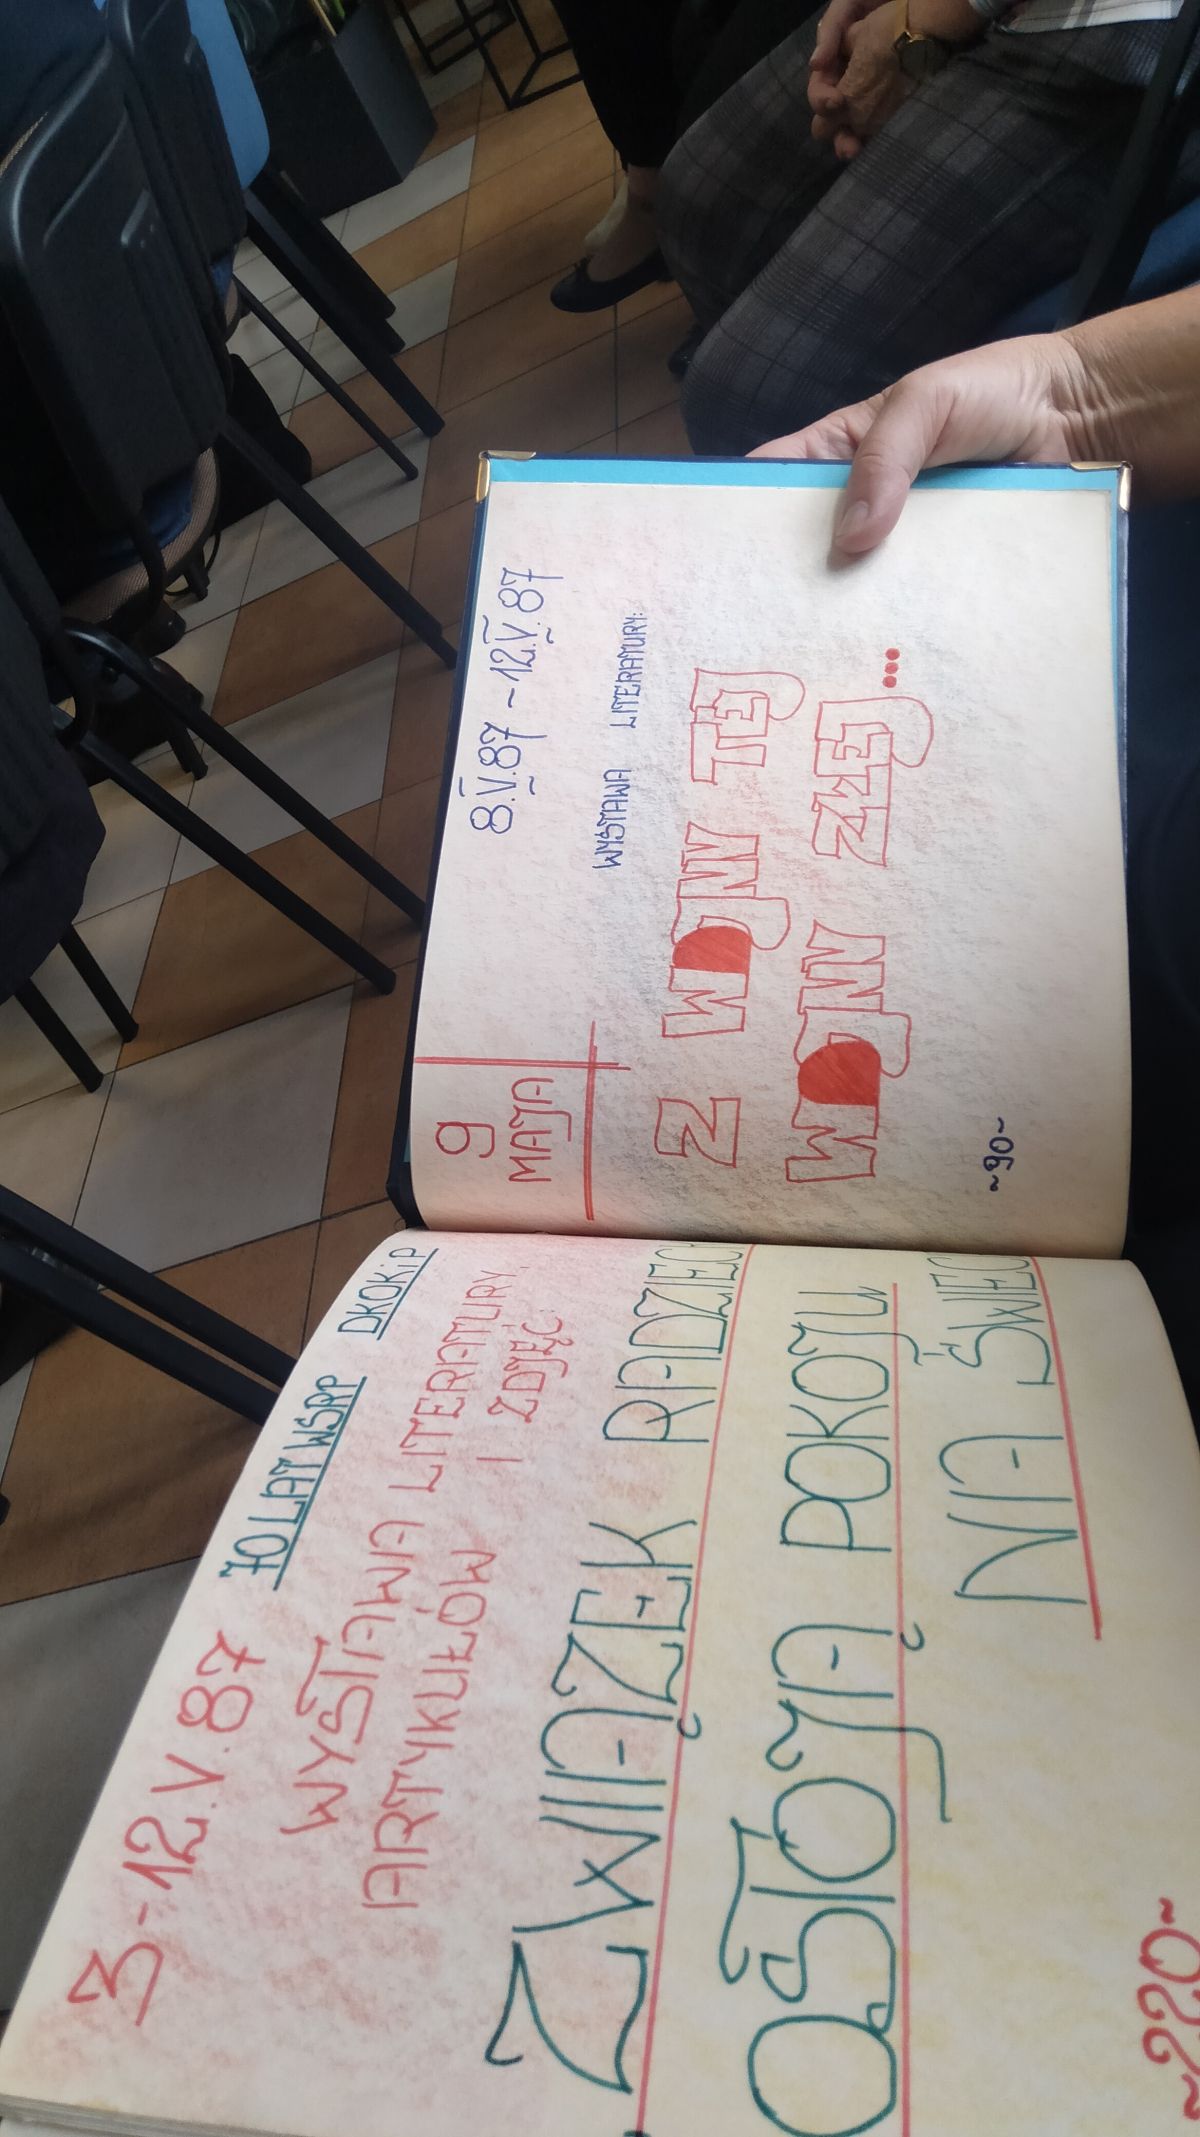 3-12.V.87 70 LAT WSRP DKOKiP
WYSTAWA LITERATURY,
ARTYKUŁÓW I ZDJĘĆ:
ZWIĄZEK RADZIECK
OSTOJĄ POKOJU
NA ŚWIEC
~220~
9
MAJA
8.V.87 - 12.V.87
WYSTAWA LITERATURY:
Z WOJNY TEJ
WOJNY ZŁEJ...
~90~